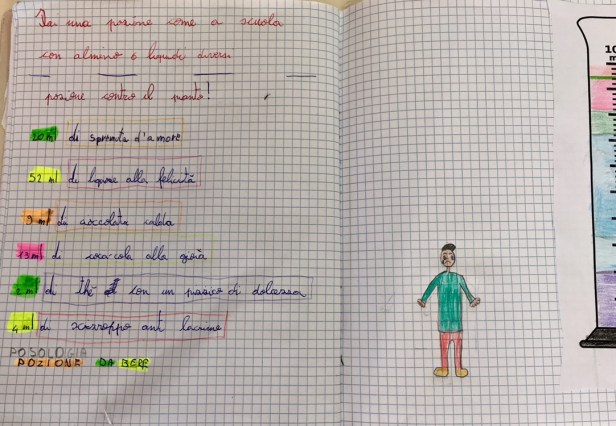 Fa una pozione come a scuola
con almeno 6 liquidi diversi
pozione contro il pianto!
20 ml di spremuta d'amore
52 ml di liquore alla felicità
9 ml di cioccolata calda
13 ml di coca-cola alla gioia
2 ml di thé con un pizzico di dolcezza
4 ml di sciroppo anti lacrime
POSOLOGIA
POZIONE DA BERE
10